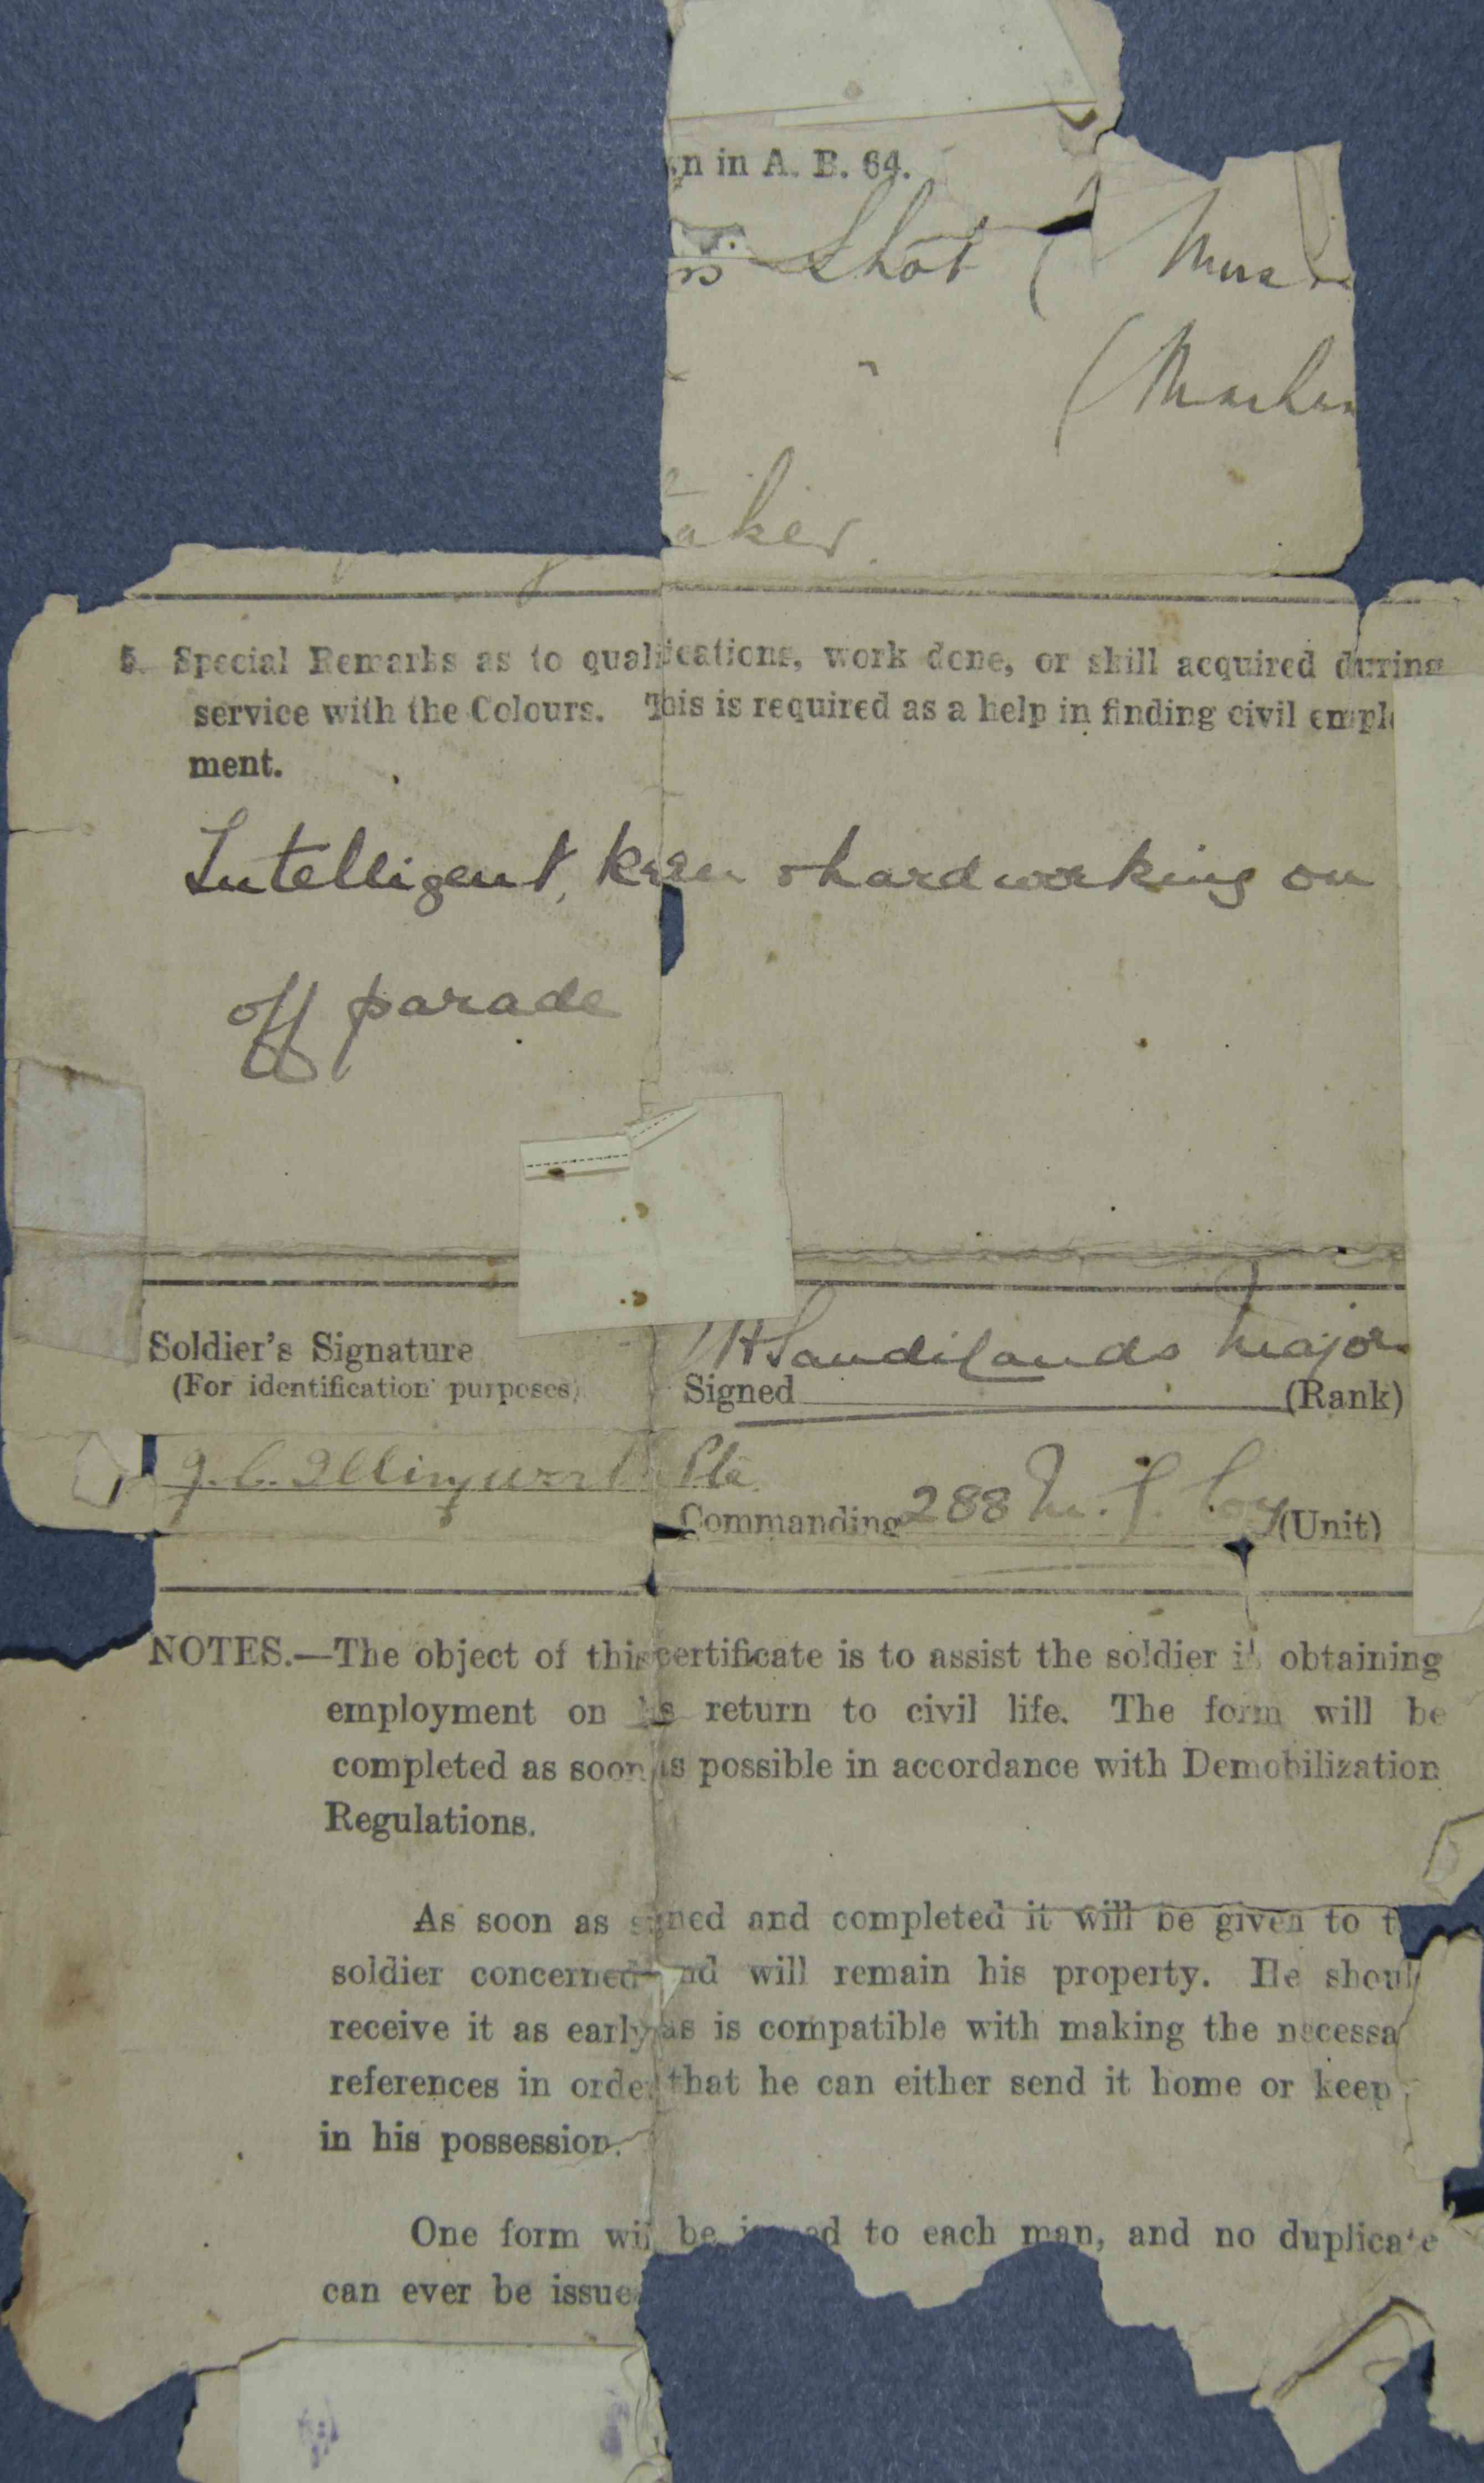 n in A. B. 64.
Shot (
(
aker
5. Special Remarks as to qualifications, work done, or skill acquired during
service with the Colours. This is required as a help in finding civil empl
ment.
Intelligent, keen & hardworking on
off parade
Soldier's Signature
(For identification purposes)
Sandilands Major
Signed (Rank)
J. C. Illingworth Pte
Commanding 288 M. G. Coy (Unit)
NOTES.—The object of this certificate is to assist the soldier in obtaining
employment on his return to civil life. The form will be
completed as soon as possible in accordance with Demobilization
Regulations.
As soon as signed and completed it will be given to t
soldier concerned and will remain his property. He shoul
receive it as early as is compatible with making the necessa
references in order that he can either send it home or keep
in his possession.
One form will be issued to each man, and no duplicate
can ever be issue